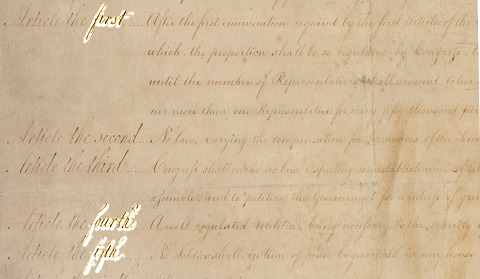 Article the first..... After the first enumeration required by the first Article of the
which, the proportion shall be so regulated by Congress, t
until the number of Representatives shall amount to two
nor more than one Representative for every fifty thousand per
Article the second... No law, varying the compensation for the services of the Sena
Article the third...... Congress shall make no law respecting an establishment of rel
assemble, and to petition the Government for a redress of grie
Article the fourth.. A well regulated Militia, being necessary to the security
Article the fifth..... No Soldier shall, in time of peace be quartered in any house